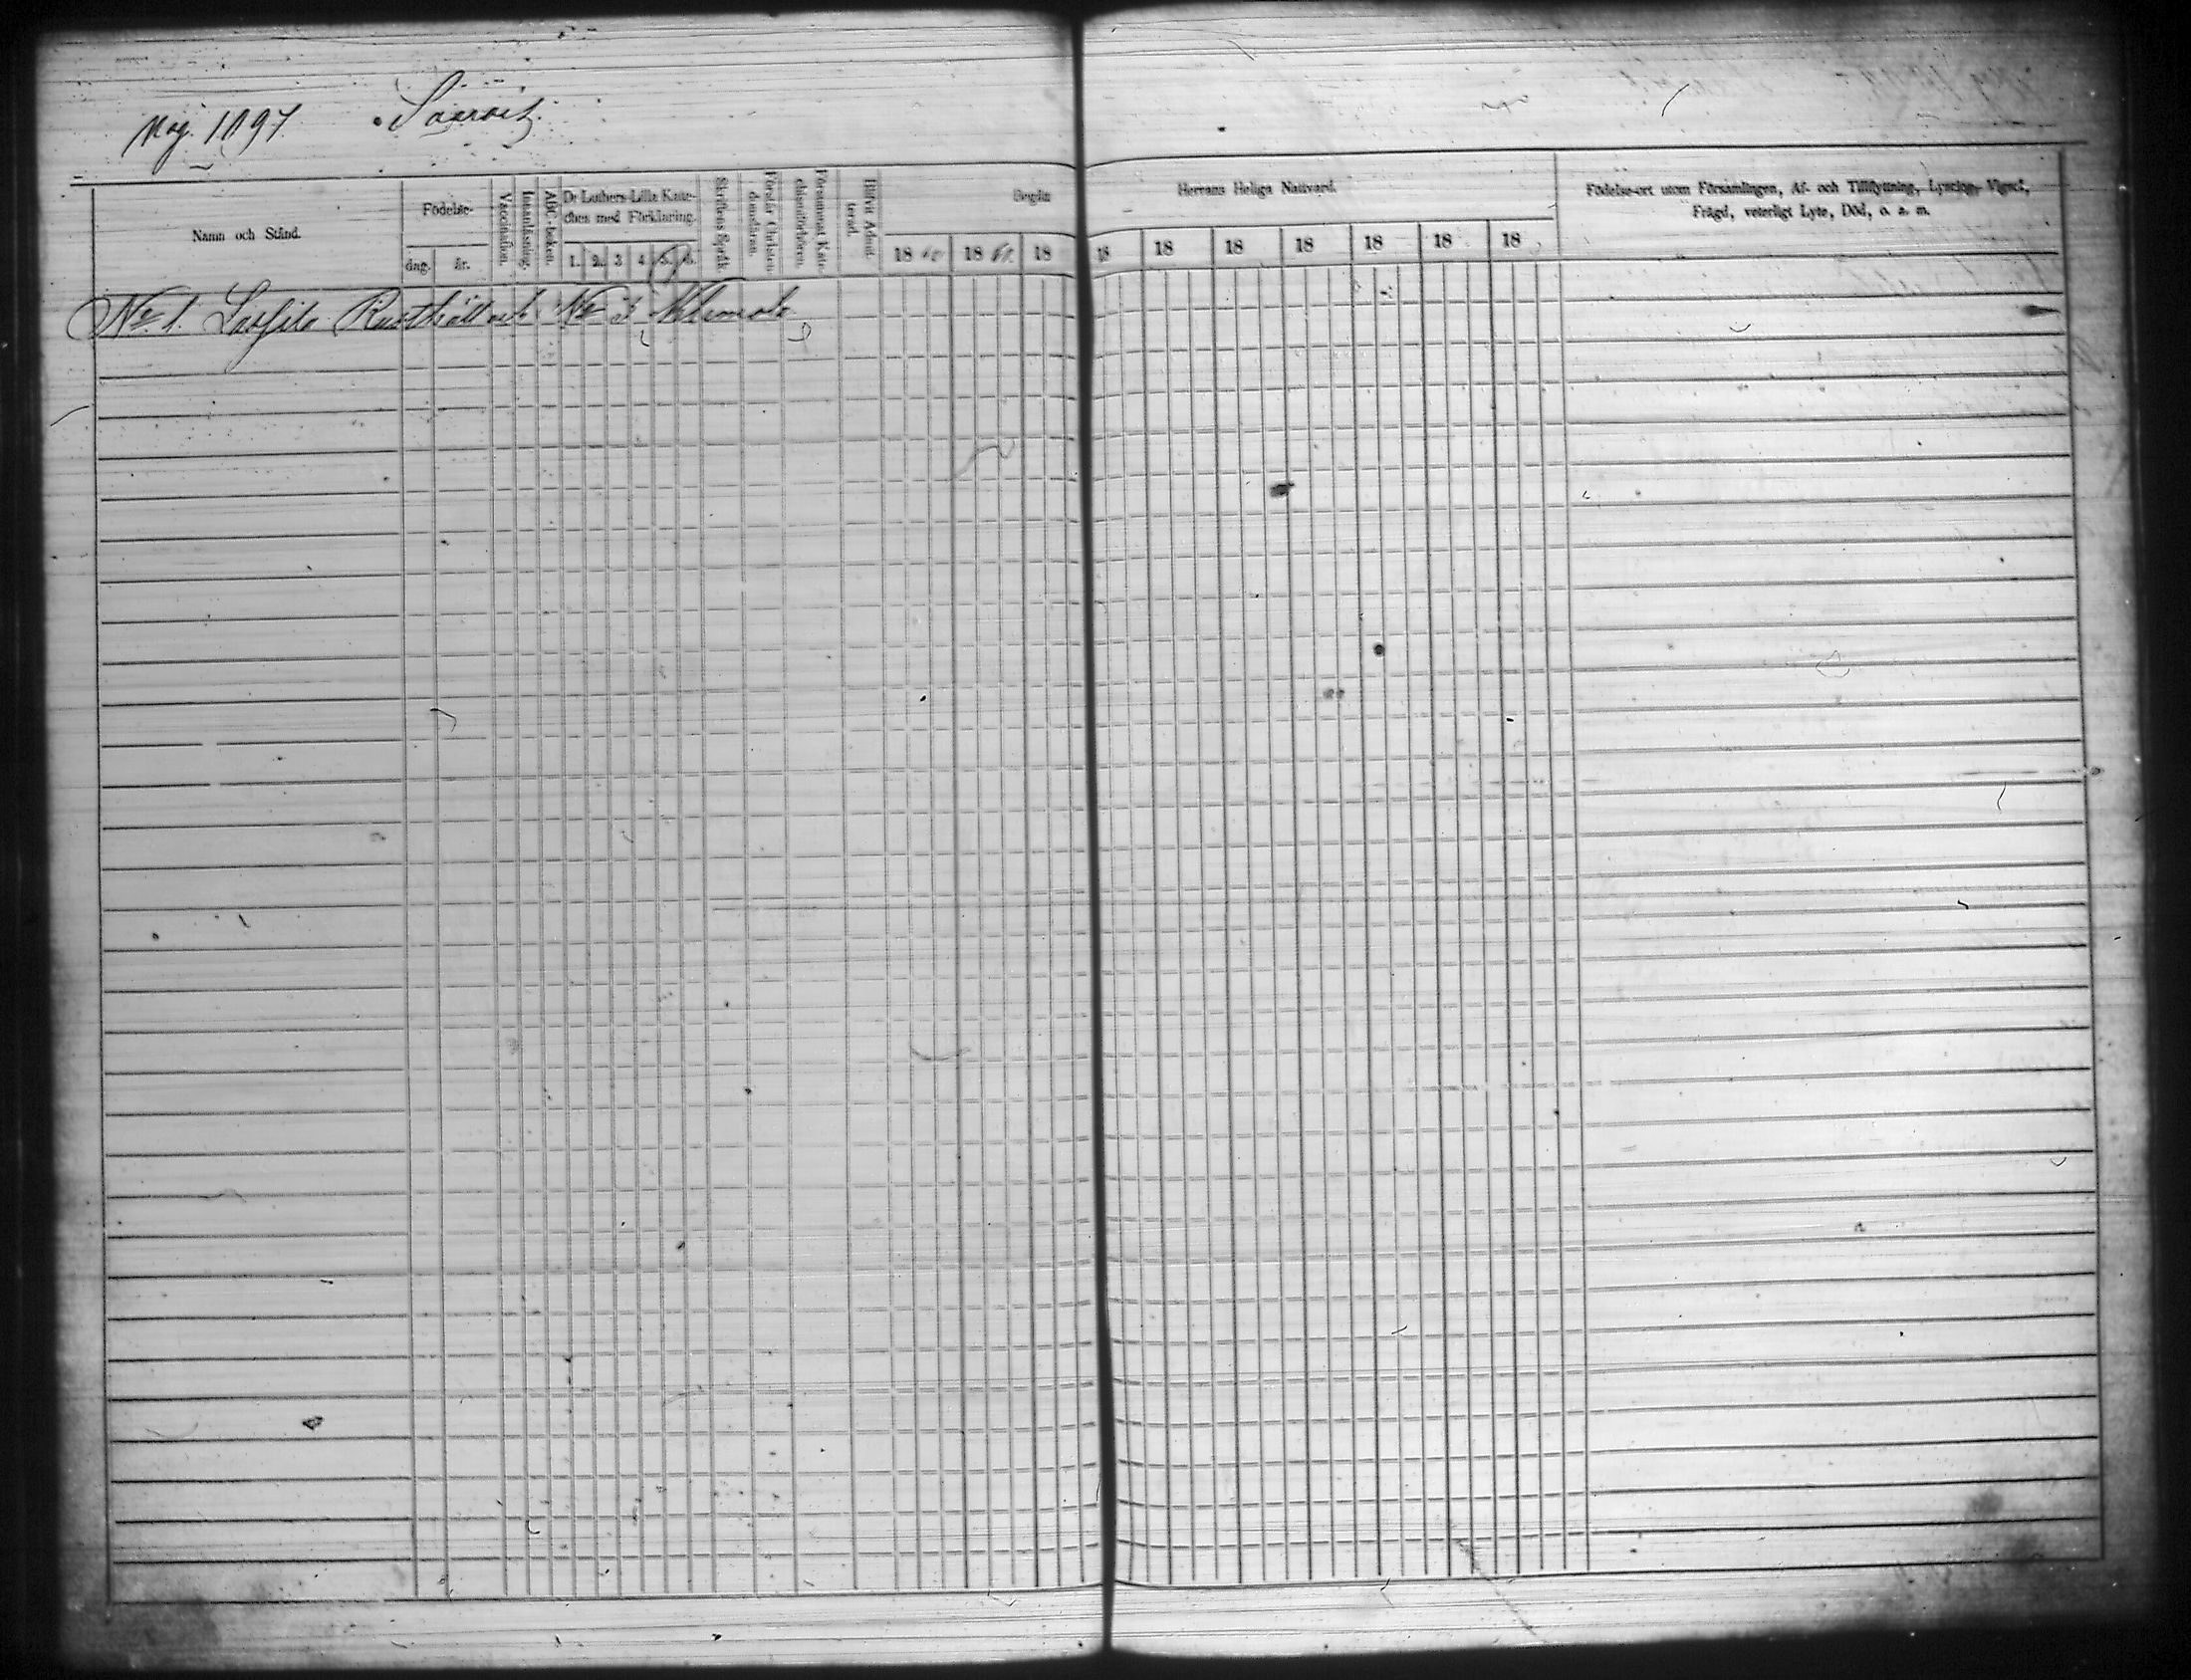 Maj. 1897
Namn och Stånd.
Födelse-
dag.
år.
Vaccination.
Innanläsning.
ABC-boken.
Dr Luthers Lilla Kate-
ches med Förklaring.
1. 2. 3 4 5. 6.
Skriftens Språk.
Förstår Christen-
domsläran.
Försummat Kate-
chismiförhören.
Blifvit Admit-
terad.
Begått
Herrans Heliga Nattvard.
18 60 18 61. 18 18 18 18 18 18 18 18
Födelse-ort utom Församlingen, Af- och Tillflyttning, Lysning, Vigsel,
Frägd, veterligt Lyte, Död, o. s. m.
No 1. Rusthåll och No 3